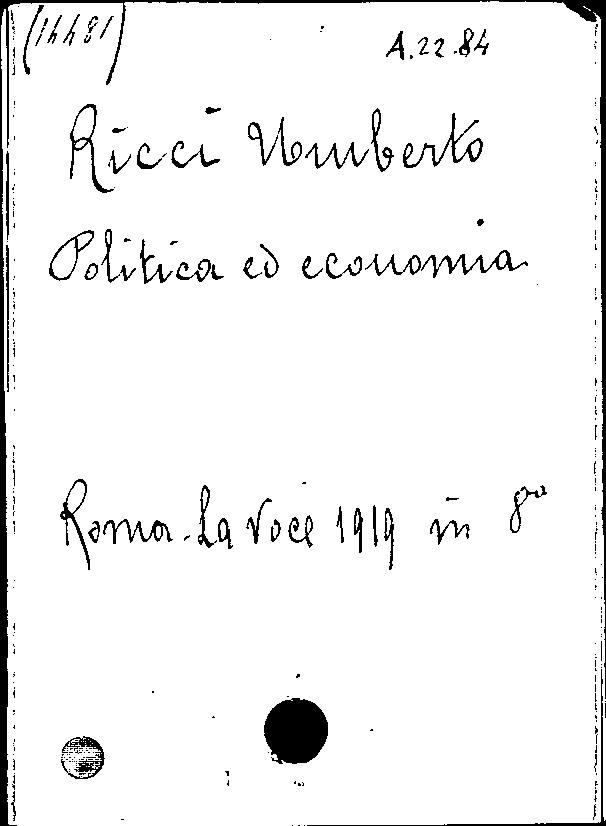 (14481)
A.22.84
Ricci Umberto
Politica ed economia
Roma. La Voce 1919 in 8°